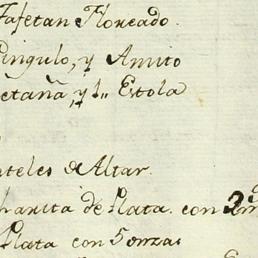 Tafetan Floreado.
Cingulo, y Amito
etaña, y 1„ Estola
teles de Altar.
harita de Plata. con
Plata con 5 onzas